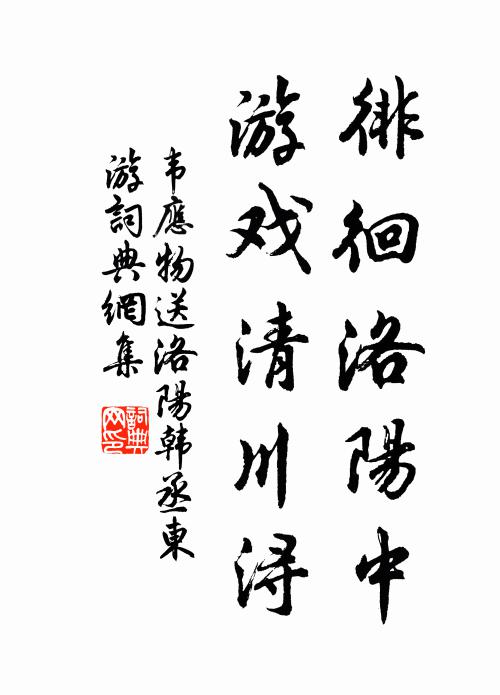 徘徊洛陽中
游戏清川浔
韦應物送洛陽韩丞東
游詞典網集
詞典网印